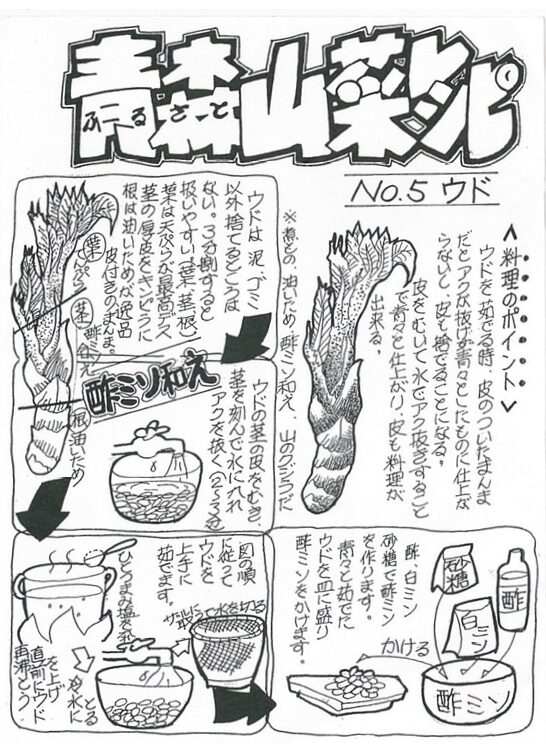 青森山菜レシピ
ふるさと
No.5 ウド
<料理のポイント>
ウドを茹でる時、皮のついたまんま
だとアクが抜けず青々としたものに仕上な
らないし皮も捨てることになる。
皮をむいて水でアク抜きすること
で青々と仕上がり、皮も料理が
出来る。
※煮もの、油いため、酢ミソ和え、山のグラダ
ウドは泥、ゴミ
以外捨てるところは
ない。3分割すると
扱いやすい。(葉、茎、根)
葉は天ぷらが最高デス
茎の厚皮をキンピラに
根は油いためが逸品
皮付きのまんま。
葉
天ぷら
茎
酢ミソ和え
根 油いため
酢ミソ和え
ウドの茎の皮をむき、
茎を刻んで水に入れ
アクを抜く(2~3分)
図の順
に従って
ウドを
上手に
茹でます。
ひとつまみ塩を
直前にウド
を上げ
再沸とう
冷水に
とる
ザルに
取って水を切る
酢、白ミソ
砂糖で酢ミソ
を作ります。
青々と茹でた
ウドを皿に盛り
酢ミソをかけます。
砂糖
酢
白ミソ
かける
酢ミソ